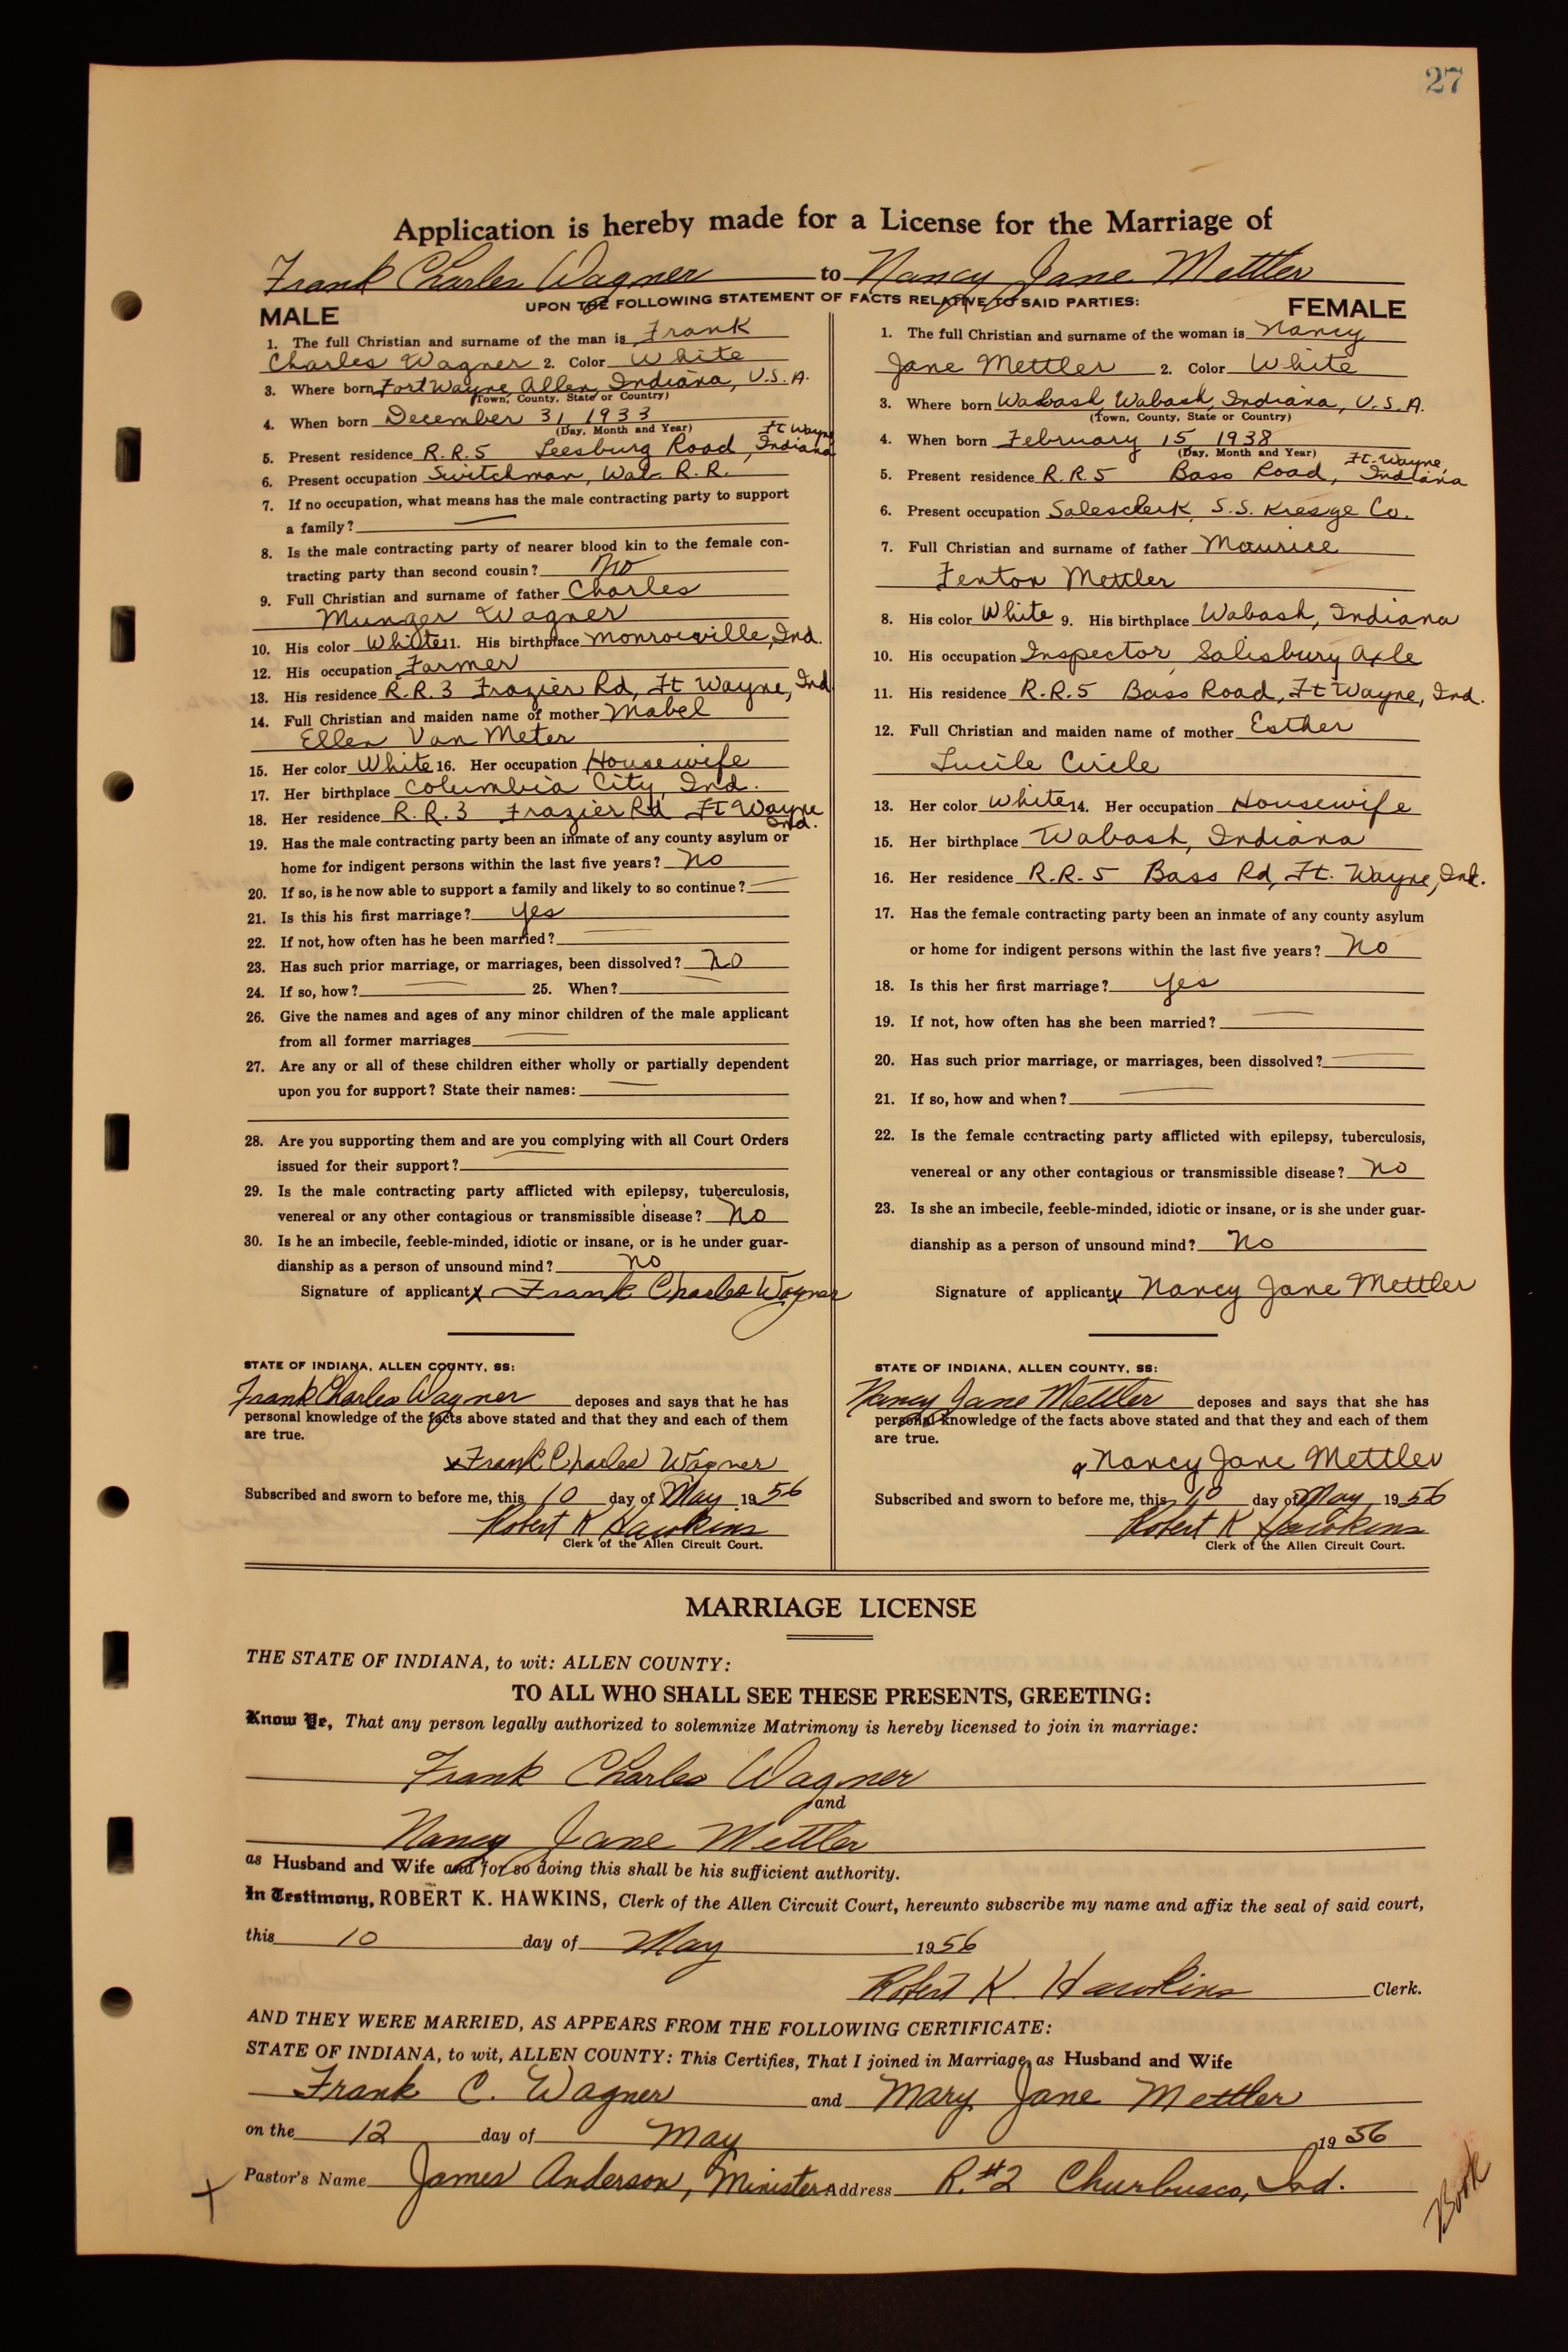 27
Application is hereby made for a License for the Marriage of
Frank Charles Wagner to Nancy Jane Mettler
UPON THE FOLLOWING STATEMENT OF FACTS RELATIVE TO SAID PARTIES:
MALE
1. The full Christian and surname of the man is Frank
Charles Wagner 2. Color White
3. Where born Fort Wayne, Allen, Indiana, U.S.A.
(Town, County, State or Country)
4. When born December 31 1933
(Day, Month and Year)
5. Present residence R.R.5 Leesburg Road, Ft Wayne Indiana
6. Present occupation Switchman, Wab. R.R.
7. If no occupation, what means has the male contracting party to support
a family? —
8. Is the male contracting party of nearer blood kin to the female con-
tracting party than second cousin? No
9. Full Christian and surname of father Charles
Munger Wagner
10. His color White 11. His birthplace Monroeville, Ind.
12. His occupation Farmer
13. His residence R.R.3 Frazier Rd, Ft Wayne, Ind
14. Full Christian and maiden name of mother Mabel
Ellen Van Meter
15. Her color White 16. Her occupation Housewife
17. Her birthplace Columbia City, Ind.
18. Her residence R.R.3 Frazier Rd Ft Wayne Ind.
19. Has the male contracting party been an inmate of any county asylum or
home for indigent persons within the last five years? No
20. If so, is he now able to support a family and likely to so continue? —
21. Is this his first marriage? yes
22. If not, how often has he been married? —
23. Has such prior marriage, or marriages, been dissolved? No
24. If so, how? — 25. When? —
26. Give the names and ages of any minor children of the male applicant
from all former marriages —
27. Are any or all of these children either wholly or partially dependent
upon you for support? State their names: —
28. Are you supporting them and are you complying with all Court Orders
issued for their support? —
29. Is the male contracting party afflicted with epilepsy, tuberculosis,
venereal or any other contagious or transmissible disease? No
30. Is he an imbecile, feeble-minded, idiotic or insane, or is he under guar-
dianship as a person of unsound mind? No
Signature of applicant x Frank Charles Wagner
STATE OF INDIANA, ALLEN COUNTY, SS:
Frank Charles Wagner deposes and says that he has
personal knowledge of the facts above stated and that they and each of them
are true.
x Frank Charles Wagner
Subscribed and sworn to before me, this 10 day of May 1956
Robert K Hawkins
Clerk of the Allen Circuit Court.
FEMALE
1. The full Christian and surname of the woman is Nancy
Jane Mettler 2. Color White
3. Where born Wabash, Wabash, Indiana, U.S.A.
(Town, County, State or Country)
4. When born February 15, 1938
(Day, Month and Year)
5. Present residence R.R.5 Bass Road, Ft. Wayne, Indiana
6. Present occupation Salesclerk S.S. Kresge Co.
7. Full Christian and surname of father Maurice
Fenton Mettler
8. His color White 9. His birthplace Wabash, Indiana
10. His occupation Inspector Salisbury Axle
11. His residence R.R.5 Bass Road, Ft Wayne, Ind.
12. Full Christian and maiden name of mother Esther
Lucile Circle
13. Her color White 14. Her occupation Housewife
15. Her birthplace Wabash, Indiana
16. Her residence R.R.5 Bass Rd, Ft. Wayne, Ind.
17. Has the female contracting party been an inmate of any county asylum
or home for indigent persons within the last five years? No
18. Is this her first marriage? yes
19. If not, how often has she been married? —
20. Has such prior marriage, or marriages, been dissolved? —
21. If so, how and when? —
22. Is the female contracting party afflicted with epilepsy, tuberculosis,
venereal or any other contagious or transmissible disease? No
23. Is she an imbecile, feeble-minded, idiotic or insane, or is she under guar-
dianship as a person of unsound mind? No
Signature of applicant x Nancy Jane Mettler
STATE OF INDIANA, ALLEN COUNTY, SS:
Nancy Jane Mettler deposes and says that she has
personal knowledge of the facts above stated and that they and each of them
are true.
x Nancy Jane Mettler
Subscribed and sworn to before me, this 10 day of May, 1956
Robert K Hawkins
Clerk of the Allen Circuit Court.
MARRIAGE LICENSE
THE STATE OF INDIANA, to wit: ALLEN COUNTY:
TO ALL WHO SHALL SEE THESE PRESENTS, GREETING:
Know Ye, That any person legally authorized to solemnize Matrimony is hereby licensed to join in marriage:
Frank Charles Wagner
and
Nancy Jane Mettler
as Husband and Wife and for so doing this shall be his sufficient authority.
In Testimony, ROBERT K. HAWKINS, Clerk of the Allen Circuit Court, hereunto subscribe my name and affix the seal of said court,
this 10 day of May 1956
Robert K. Hawkins Clerk.
AND THEY WERE MARRIED, AS APPEARS FROM THE FOLLOWING CERTIFICATE:
STATE OF INDIANA, to wit, ALLEN COUNTY: This Certifies, That I joined in Marriage as Husband and Wife
Frank C. Wagner and Mary Jane Mettler
on the 12 day of May 1956
Pastor's Name James Anderson, Minister Address R.#2 Churbusco, Ind.
Book